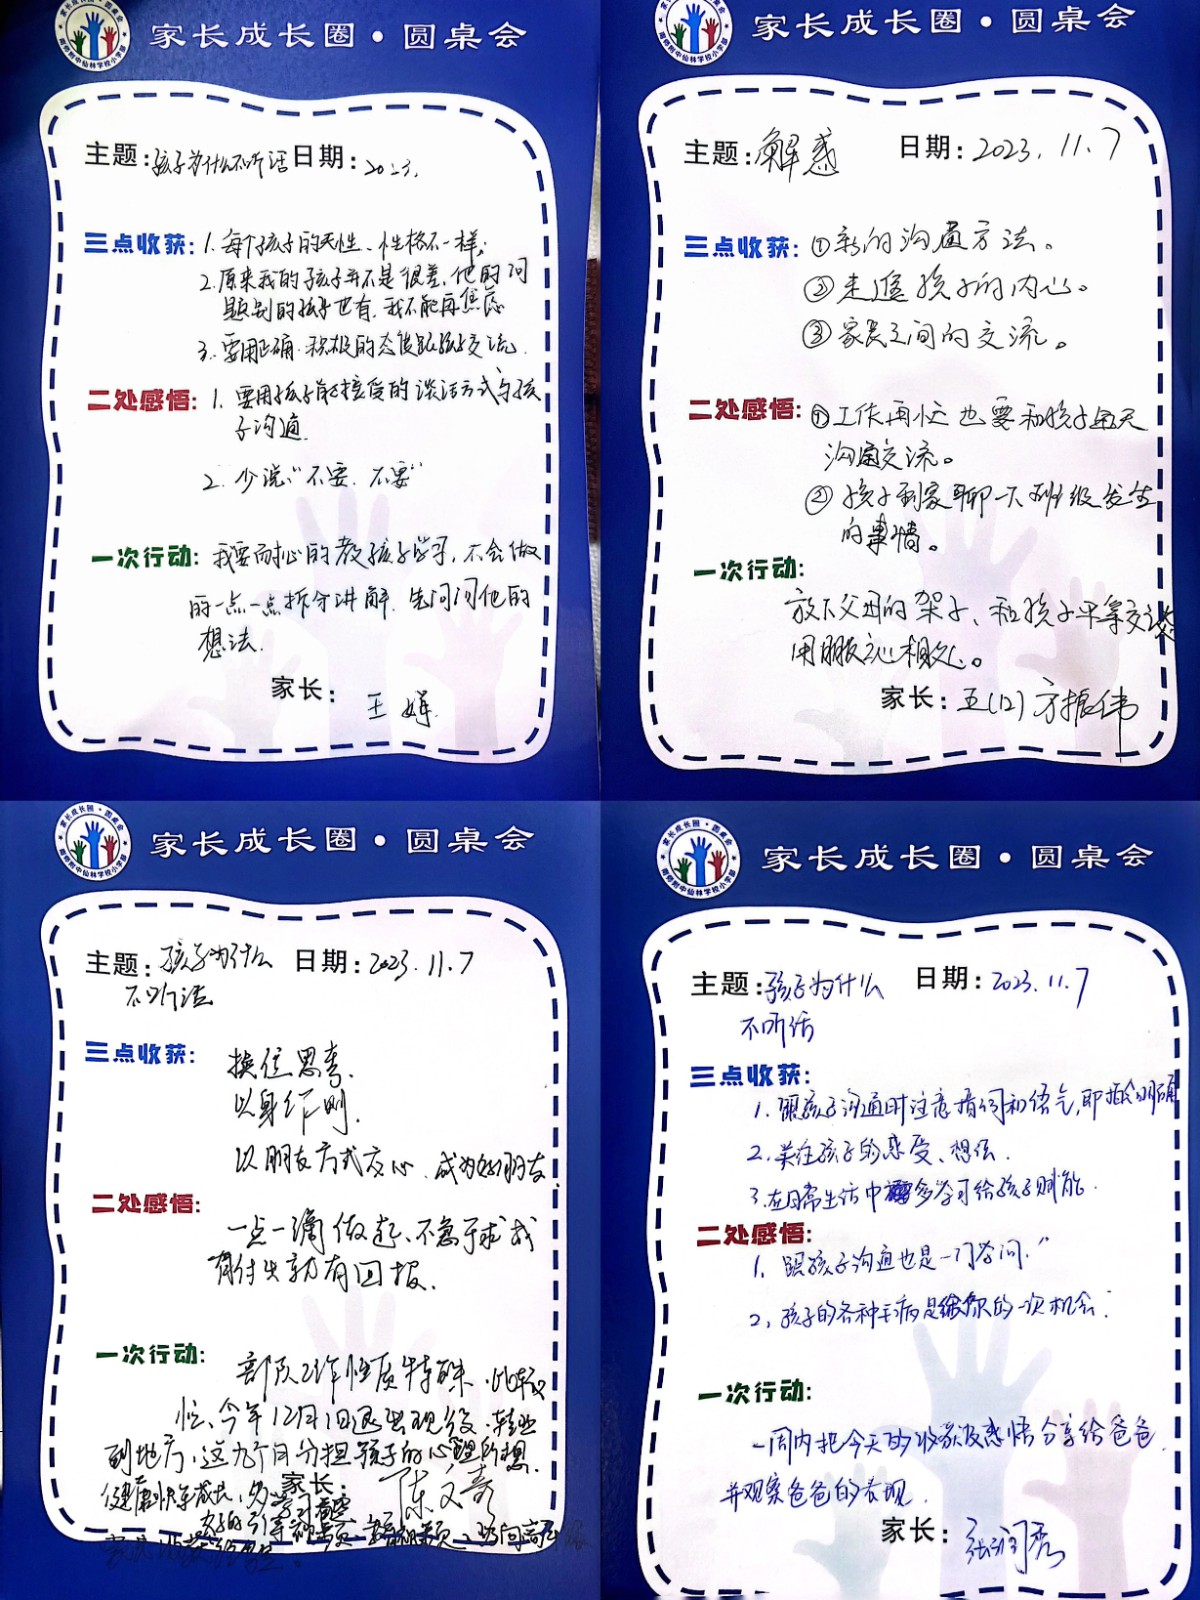 家长成长圈·圆桌会
主题:孩子为什么不听话 日期:2023.
三点收获: 1. 每个孩子的天性、性格不一样;
2. 原来我的孩子并不是很差,他的问
题别的孩子也有,我不能再焦虑
3. 要用正确.积极的态度跟孩子交流.
二处感悟: 1. 要用孩子能接受的谈话方式与孩
子沟通.
2. 少说:"不要.不要"
一次行动: 我要耐心的教孩子学习,不会做
的一点一点拆分讲解.先问问他的
想法.
家长:王婵
家长成长圈·圆桌会
主题:解惑 日期:2023.11.7
三点收获: ①新的沟通方法。
②走进孩子的内心。
③家长之间的交流。
二处感悟: ①工作再忙也要和孩子每天
沟通交流。
②孩子到家聊一下班级发生
的事情。
一次行动:
放下父母的架子、和孩子平等交谈
用朋友心相处。
家长:五(12) 方振伟
家长成长圈·圆桌会
主题:孩子为什么 日期:2023.11.7
不听话
三点收获: 换位思考.
以身作则.
以朋友方式交心.成为好朋友.
二处感悟:
一点一滴做起、不急于求成
有付出就有回报.
一次行动: 部队工作性质特殊.比较
忙、今年12月1日退出现役.转业
到地方,这九个月分担孩子的心理所想.
健康快乐成长,多学习
家长:陈文奇
家长成长圈·圆桌会
主题:孩子为什么 日期:2023.11.7
不听话
三点收获:
1. 跟孩子沟通时注意措词和语气,即指令明确
2. 关注孩子的感受、想法.
3. 在日常生活中多学习给孩子赋能.
二处感悟:
1. 跟孩子沟通也是一门学问."
2, 孩子的各种毛病是给你的一次机会.
一次行动:
一周内把今天的收获及感悟分享给爸爸.
并观察爸爸的表现.
家长:张润秀